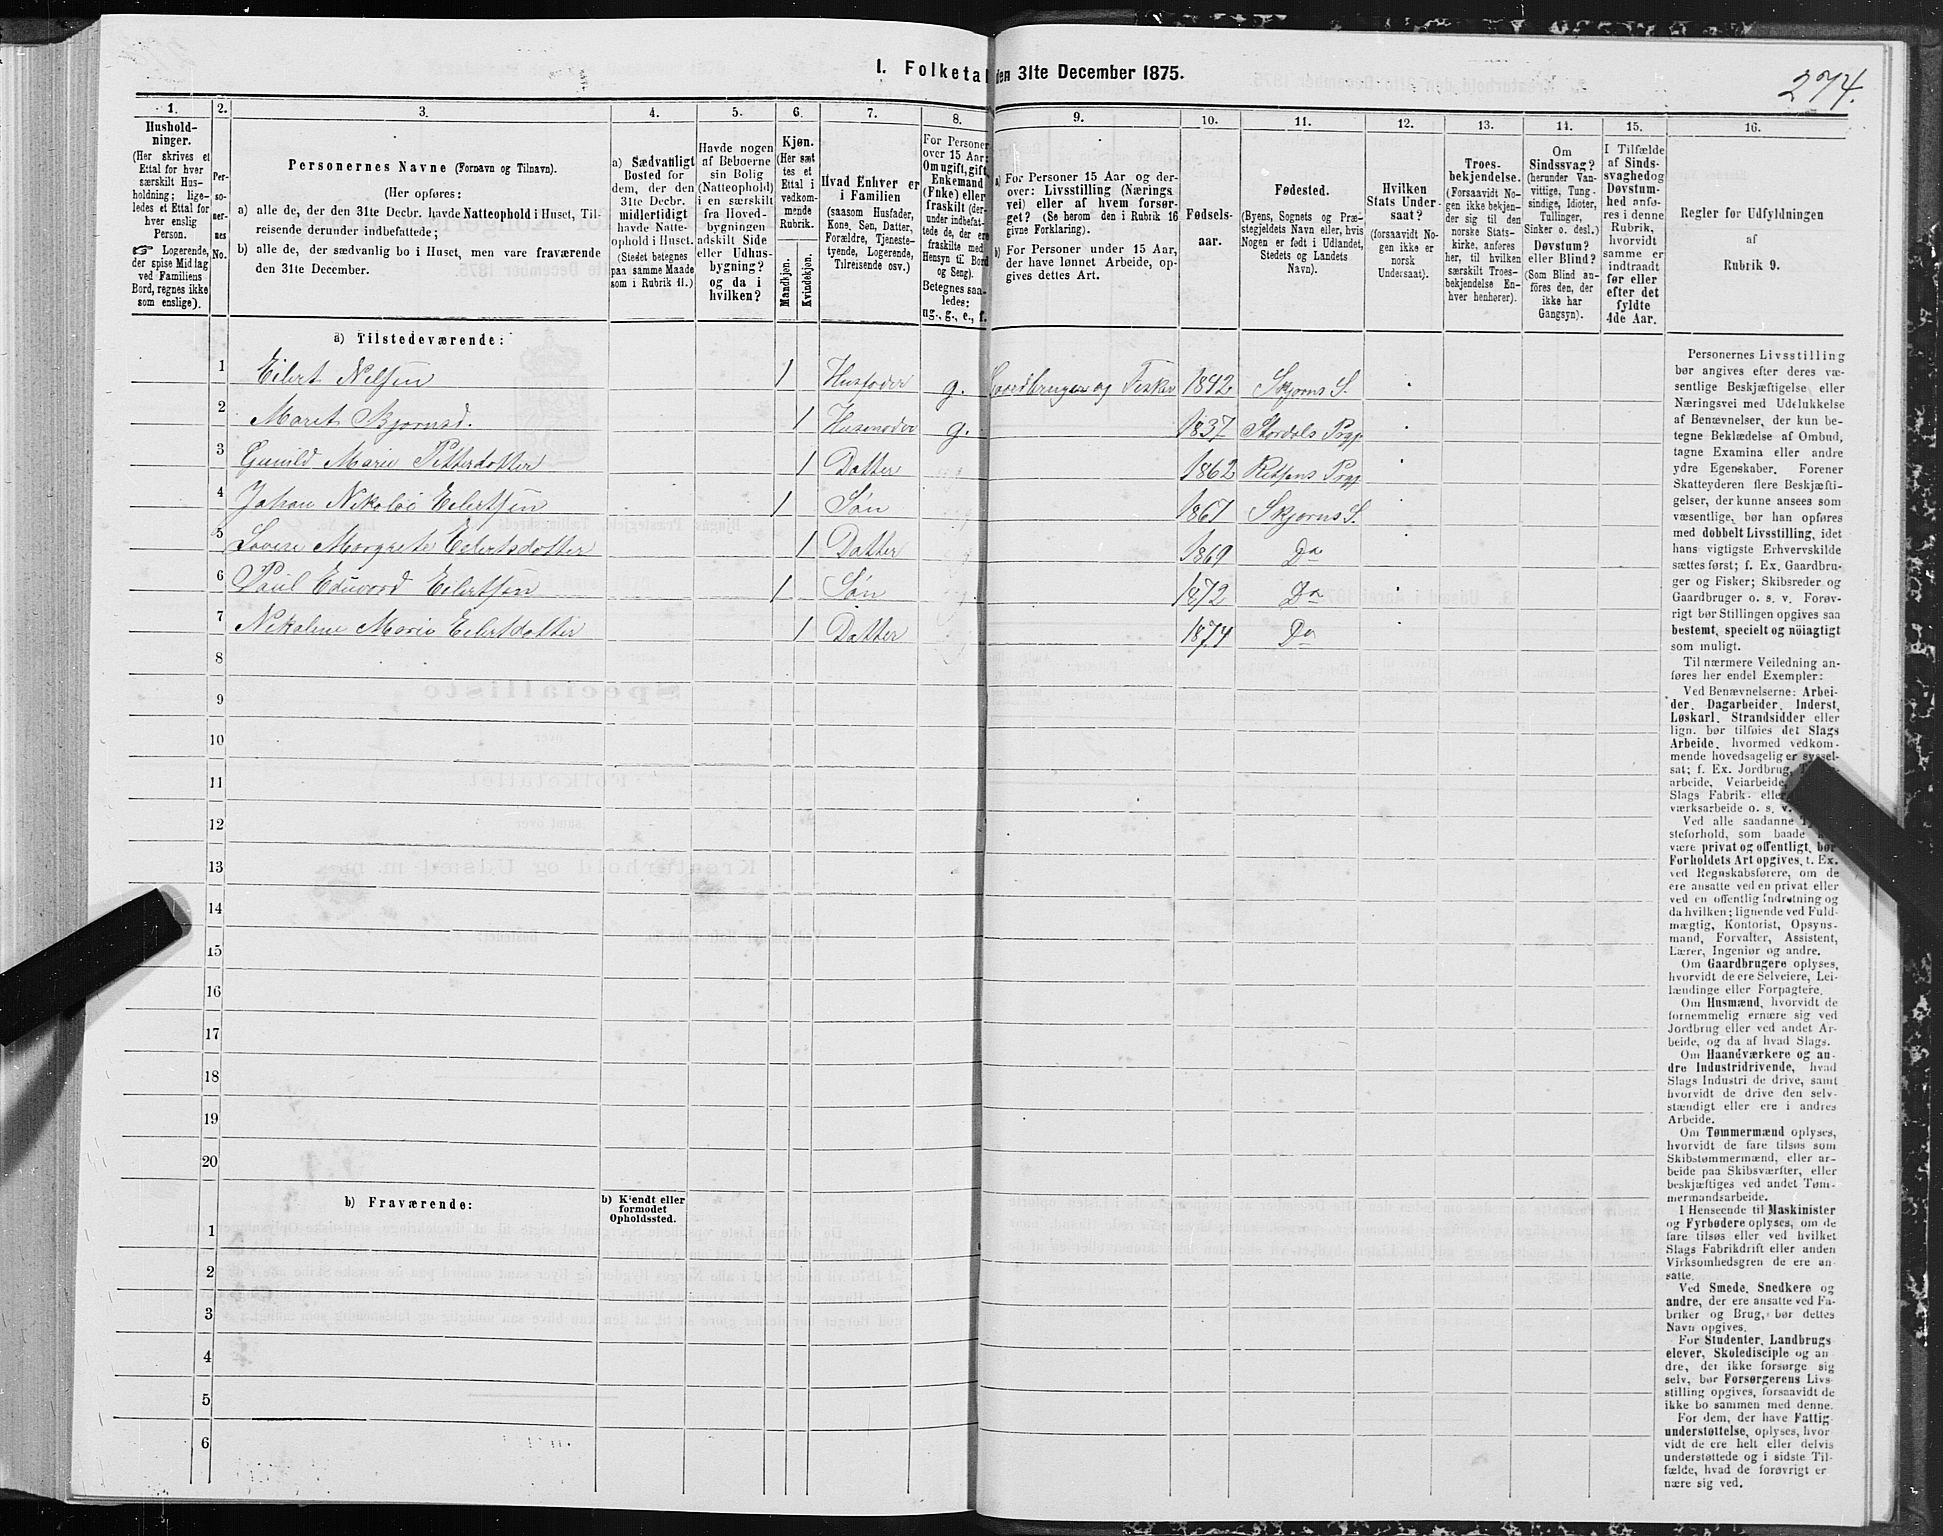 I. Folketal den 31te December 1875.
274.
1.
2.
3.
4.
5.
6.
7.
8.
9.
10.
11.
12.
13.
14.
15.
16.
Hushold-
ninger.
(Her skrives et
Ettal for hver
særskilt Hus-
holdning; lige-
ledes et Ettal for
hver enslig
Person.
☞ Logerende,
der spise Midlag
ved Familiens
Bord, regnes ikke
som enslige).
Per-
so-
ner-
nes
No.
Personernes Navne (Fornavn og Tilnavn).
(Her opføres:
a) alle de, der den 31te Decbr. havde Natteophold i Huset, Til-
reisende derunder indbefattede;
b) alle de, der sædvanlig bo i Huset, men vare fraværende
den 31te December.
a) Sædvanligt
Bosted for
dem, der den
31te Decbr.
midlertidigt
havde Natte-
ophold i Huset.
(Stedet betegnes
paa samme Maade
som i Rubrik 11.)
Havde nogen
af Beboerne
sin Bolig
(Natteophold)
i en særskilt
fra Hoved-
bygningen
adskilt Side
eller Udhus-
bygning?
og da i
hvilken?
Kjøn.
(Her sæt
tes et
Ettal i
vedkom-
mende
Rubrik.
Mandkjøn.
Kvindekjøn.
Hvad Enhver er
i Familien
(saasom Husfader,
Kone, Søn, Datter,
Forældre, Tjeneste-
tyende, Logerende,
Tilreisende osv.)
For Personer
over 15 Aar:
Om ugift, gift,
Enkemand
(Enke) eller
fraskilt (der-
under indbefat-
tede de, der ere
fraskilte med
Hensyn til Bord
og Seng).
Betegnes saa-
ledes:
ug., g., e., f.
a) For Personer 15 Aar og der-
over: Livsstilling (Nærings
vei) eller af hvem forsør-
get? (Se herom den i Rubrik 16
givne Forklaring).
b) For Personer under 15 Aar,
der have lønnet Arbeide, op-
gives dettes Art.
Fødsels-
aar.
Fødested.
(Byens, Sognets og Præ-
stegjeldets Navn eller, hvis
Nogen er født i Udlandet,
Stedets og Landets
Navn).
Hvilken
Stats Under-
saat?
(forsaavidt No-
gen ikke er
norsk
Undersaat).
Troes-
bekjendelse.
(Forsaavidt No-
gen ikke bekjen-
der sig til den
norske Stats-
kirke, anføres
her, til hvilken
særskilt Troes-
bekjendelse En-
hver henhører).
Om
Sindssvag?
(herunder Van-
vittige, Tung-
sindige, Idioter,
Tullinger,
Sinker o. desl.)
Døvstum?
eller Blind?
(Som Blind an-
føres den, der
ikke har
Gangsyn).
I Tilfælde
af Sinds-
svaghed og
Døvstum-
hed anfø-
res i denne
Rubrik,
hvorvidt
samme er
indtraadt
før eller
efter det
fyldte
4de Aar.
Regler for Udfyldningen
af
Rubrik 9.
a) Tilstedeværende:
1 Eilert Nelsen 1 Husfader g. Gaardbruger og Fisker 1842 Skjørns S.
2 Maret Bjørnsd. 1 Husmoder g. 1837 Stordals Prgj.
3 Gunild Marie Petterdotter 1 Datter 1862 Rissens Prgj.
4 Johan Nikolai Eilertsen 1 Søn 1867 Skjørns S.
5 Lovise Margrete Eilertsdotter 1 Datter 1869 Do
6 Paul Eduvard Eilertsen 1 Søn 1872 Do
7 Nikoline Marie Eilertsdotter 1 Datter 1874 Do
8
9
10
11
12
13
14
15
16
17
18
19
20
b) Fraværende:
b) Kjendt eller
formodet
Opholdssted.
1
2
3
4
5
6
Personernes Livsstilling
bør angives efter deres væ-
sentlige Beskjæftigelse eller
Næringsvei med Udelukkelse
af Benævnelser, der kun be-
tegne Beklædelse af Ombud,
tagne Examina eller andre
ydre Egenskaber. Forener
Skatteyderen flere Beskjæfti-
gelser, der kunne ansees som
væsentlige, bør han opføres
med dobbelt Livsstilling, idet
hans vigtigste Erhvervskilde
sættes først; f. Ex. Gaardbru-
ger og Fisker; Skibsreder og
Gaardbruger o. s. v. Forøv-
rigt bør Stillingen opgives saa
bestemt, specielt og nöiagtigt
som muligt.
Til nærmere Veiledning an-
føres her endel Exempler:
Ved Benævnelserne: Arbei-
der, Dagarbeider, Inderst,
Løskarl, Strandsidder eller
lign. bør tilføies det Slags
Arbeide, hvormed vedkom-
mende hovedsagelig er syssel-
sat; f. Ex. Jordbrug,
arbeide, Veiarbeide,
Slags Fabrik- eller
værksarbeide o. s. v.
Ved alle saadanne
steforhold, som baade
være privat og offentligt, bør
Forholdets Art opgives, t. Ex.
ved Regnskabsførere, om de
ere ansatte ved en privat eller
ved en offentlig Indretning og
da hvilken; lignende ved Fuld-
mægtig, Kontorist, Opsyns-
mand, Forvalter, Assistent,
Lærer, Ingeniør og andre.
Om Gaardbrugere oplyses,
hvorvidt de ere Selveiere, Lei-
lændinge eller Forpagtere.
Om Husmænd, hvorvidt de
fornemmelig ernære sig ved
Jordbrug eller ved andet Ar-
beide, og da af hvad Slags.
Om Haandværkere og an-
dre Industridrivende, hvad
Slags Industri de drive, samt
hvorvidt de drive den selv-
stændigt eller ere i andres
Arbeide.
Om Tømmermænd oplyses,
hvorvidt de fare tilsøs som
Skibstømmermænd, eller ar-
beide paa Skibsværfter, eller
beskjæftiges ved andet Tøm-
mermandsarbeide.
I Henseende til Maskinister
og Fyrbødere oplyses, om de
fare tilsøs eller ved hvilket
Slags Fabrikdrift eller anden
Virksomhedsgren de ere an-
satte.
Ved Smede, Snedkere og
andre, der ere ansatte ved Fa-
briker og Brug, bør dettes
Navn opgives.
For Studenter, Landbrugs
elever, Skoledisciple og an
dre, der ikke forsørge sig
selv, bør Forsørgerens Livs-
stilling opgives, forsaavidt de
ikke bo sammen med denne.
For dem, der have Fattig-
understøttelse, oplyses, hvor
vidt de ere helt eller delvis
understøttede og i sidste Til-
fælde, hvad de forøvrigt er
nære sig ved.